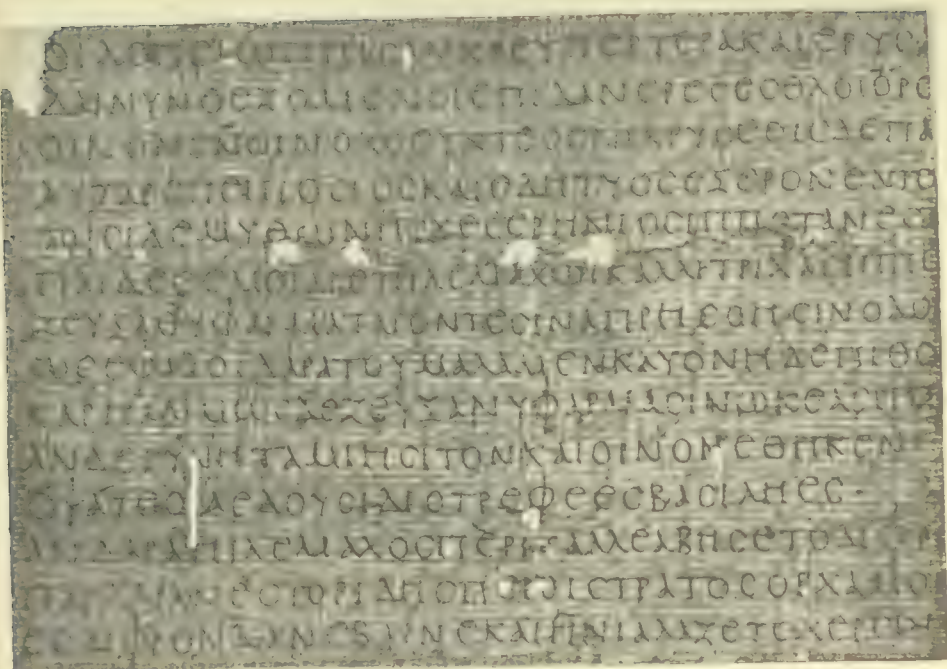 ΟΙΔΕΠΕΙΩΠΤΗCΑΝΚΡΕΥΠΕΡΤΕΡΑΚΑΙΕΡΥCΑ
ΔΑΙΝΥΝΘΕΖΟΜΕΝΟΙΕΠΙΔΑΝΕΡΕCΕCΘΛΟΙΟΡΟ
ΟΙΝΟΝΕΝΟΙΝΟΧΟΕΥΝΤΕCΕΝΙΧΡΥCΕΟΙCΔΕΠΑ
ΑΥΤΑΡΕΠΕΙΠΟCΙΟCΚΑΙΕΔΗΤΥΟCΕΞΕΡΟΝΕΝΤΟ
ΤΟΙCΙΔΕΜΥΘΩΝΗΡΧΕΓΕΡΗΝΙΟCΙΠΠΟΤΑΝΕC
ΠΑΙΔΕCΕΜΟΙΑΓΕΤΗΛΕΜΑΧΩΙΚΑΛΛΙΤΡΙΧΑCΙΠΠΟ
ΖΕΥΞΑΘΥΦΑΡΜΑΤΑΓΟΝΤΕCΙΝΑΠΡΗCCΗCΙΝΟΔΟ
ΩCΕΦΑΘΟΙΔΑΡΑΤΟΥΜΑΛΑΜΕΝΚΛΥΟΝΗΔΕΠΙΘΟ
ΚΑΡΠΑΛΙΜΩCΔΕΖΕΥΞΑΝΥΦΑΡΜΑCΙΝΩΚΕΑCΙΠΠ
ΑΝΔΕΓΥΝΗΤΑΜΙΗCΙΤΟΝΚΑΙΟΙΝΟΝΕΘΗΚΕΝ
ΟΨΑΤΕΟΙΑΕΔΟΥCΙΔΙΟΤΡΕΦΕΕCΒΑCΙΛΗΕC·
ΑΝΔΑΡΑΤΗΛΕΜΑΧΟCΠΕΡΙΚΑΛΛΕΑΒΗCΕΤΟΔΙΦΡ
ΠΑΡΔΑΡΑΝΕCΤΟΡΙΔΗCΠΕΙCΙCΤΡΑΤΟCΟΡΧΑΜΟ
ΕCΔΙΦΡΟΝΔΑΝΕΒΑΙΝΕΚΑΙΗΝΙΑΛΑΖΕΤΟΧΕΡCΙΝ